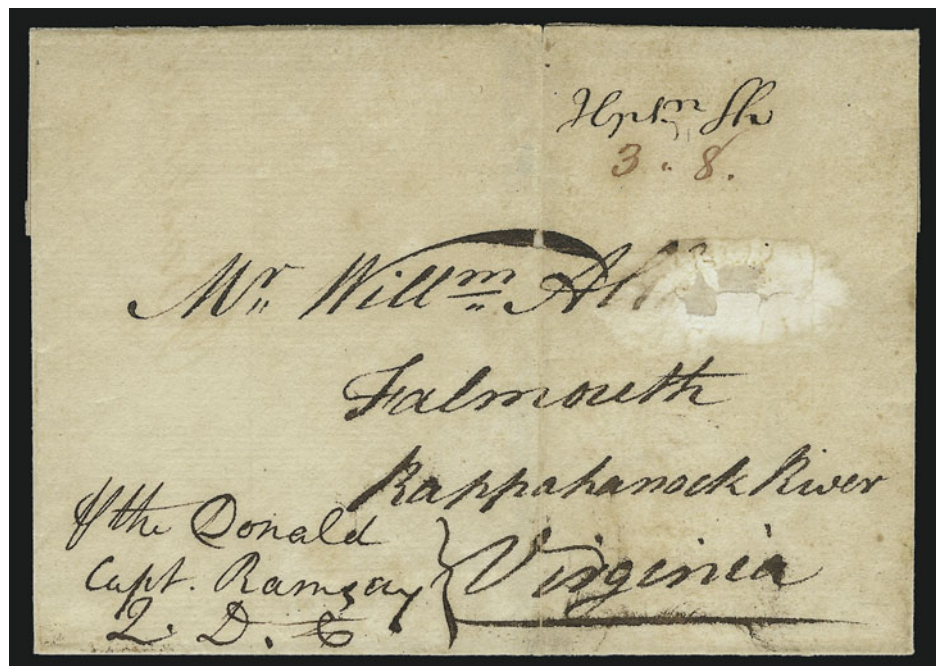 Hptn Sh
3 .. 8.
Mr. Willm Al
Falmouth
Rappahanock River
Virginia
p the Donald
Capt. Ramsay
Q. D. C